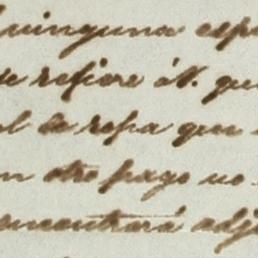 ninguna esp
se refiere á V. que
l de ropa que
n otro pago no
encontrará adj